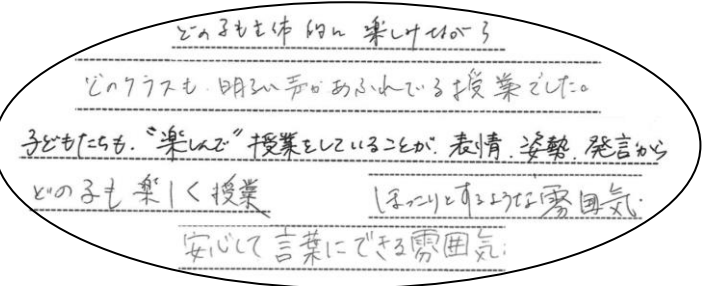 どの子も主体的に楽しみながら
どのクラスも、明るい声があふれている授業でした。
子どもたちも、“楽しんで”授業をしていることが、表情、姿勢、発言から
どの子も楽しく授業
ほっこりとするような雰囲気
安心して言葉にできる雰囲気